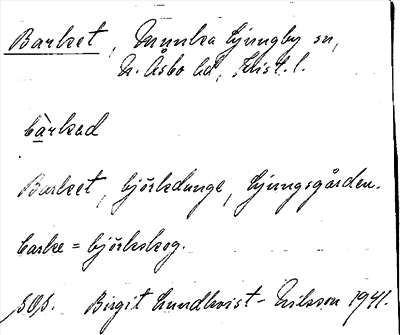 Barket, Munka Ljungby sn,
N. Åsbo hd, Krist. l.
bàrkad
Barket, björkdunge, Ljungsgården.
barke = björkskog.
sOs. Birgit Lundkvist-Nilsson 1941.